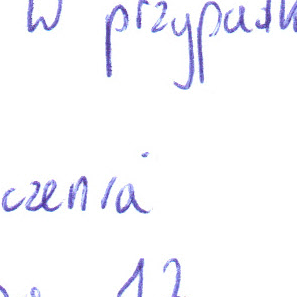 W przypadk
czenia
12